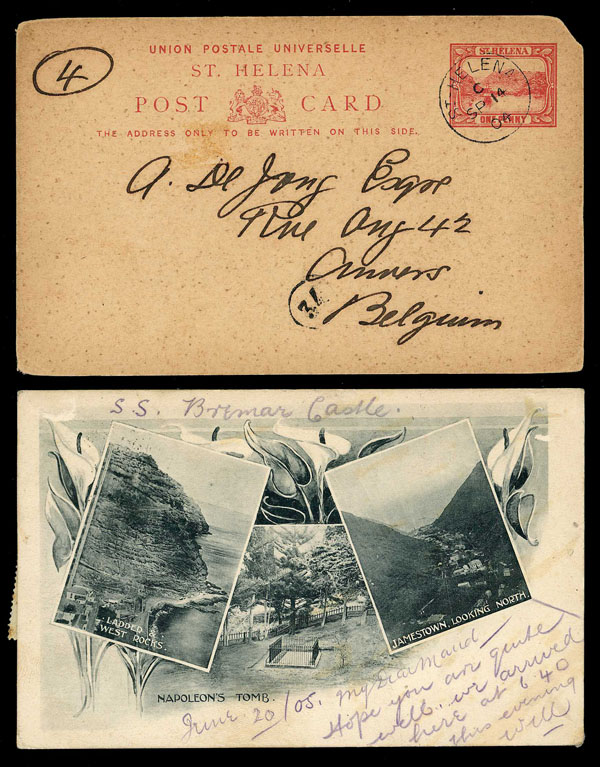 4
UNION POSTALE UNIVERSELLE
ST. HELENA
POST CARD
THE ADDRESS ONLY TO BE WRITTEN ON THIS SIDE.
ST. HELENA
ONE PENNY
ST HELENA
C
SP 14
04
A. De Jong Esqre
Rue Ang 42
Anvers
Belgium
S.S. Bremar Castle.
LADDER &
WEST ROCKS.
JAMESTOWN, LOOKING NORTH.
NAPOLEON'S TOMB.
June 20/05. My dear Maud
Hope you are quite
well. we arrived
here at 6.40
this evening
Will